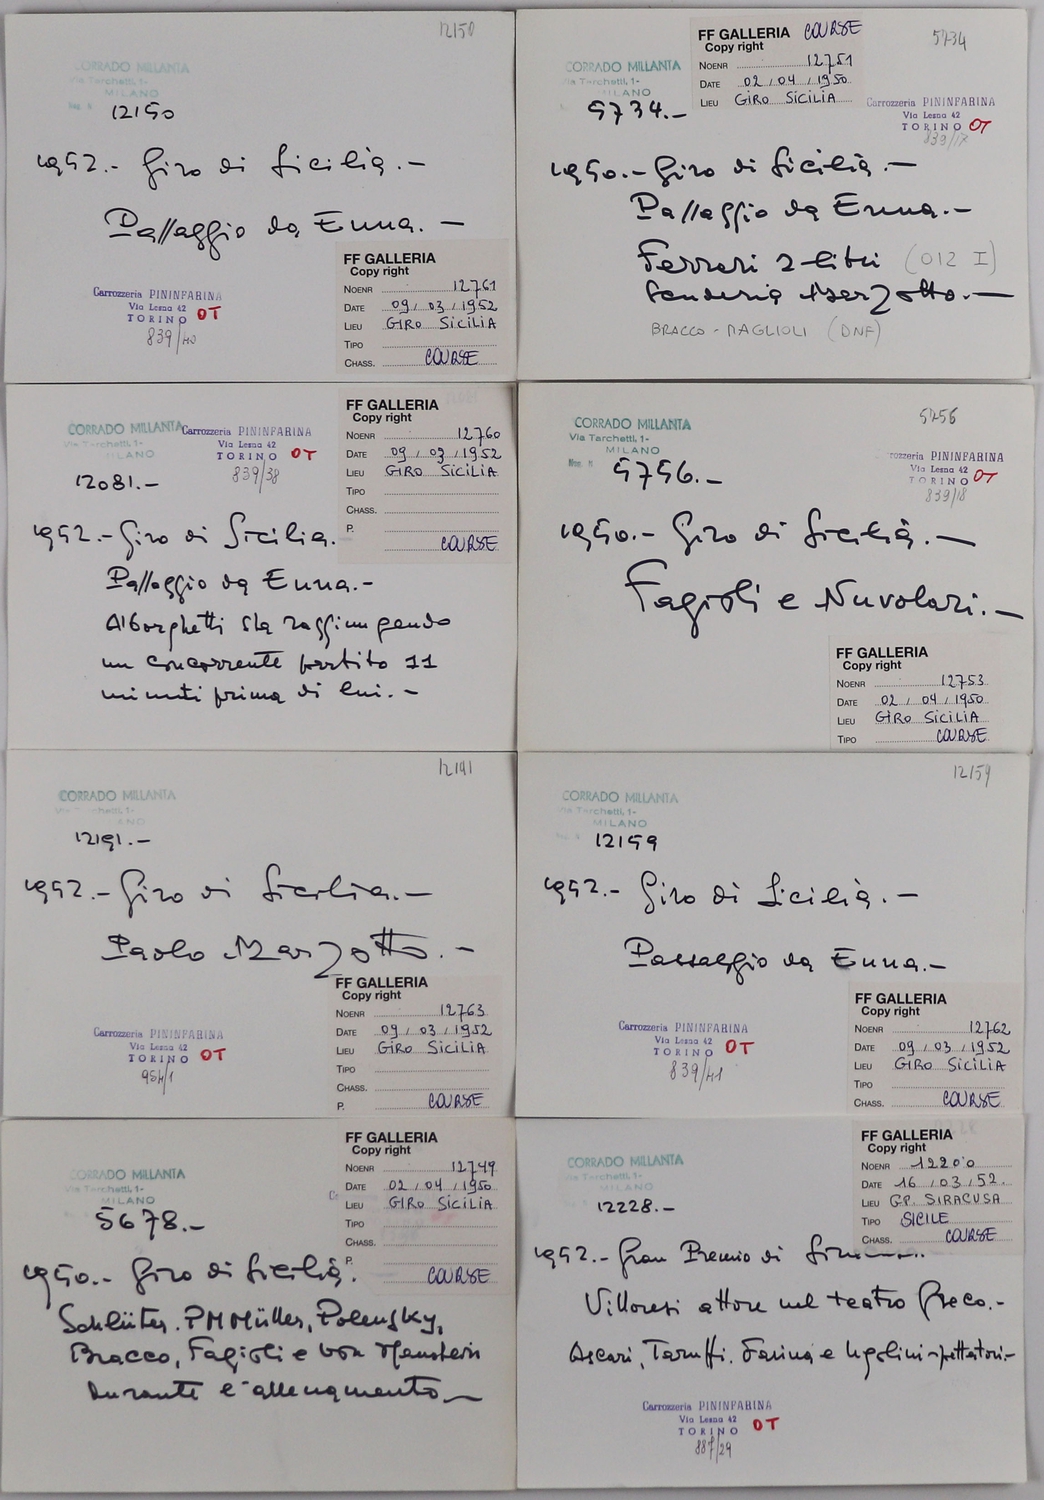 12150
CORRADO MILLANTA
Via Tarchetti, 1-
MILANO
12150
1952.- Giro di Sicilia.-
Passaggio da Enna.-
Carrozzeria PININFARINA
Via Lesna 42
TORINO OT
839/40
FF GALLERIA
Copy right
NOENR 12761
DATE 09/03/1952
LIEU GIRO SICILIA
TIPO
CHASS. COURSE
FF GALLERIA COURSE
Copy right
NOENR 12751
DATE 02/04/1950
LIEU GIRO SICILIA
5734
CORRADO MILLANTA
Via Tarchetti, 1-
MILANO
5734.-
Carrozzeria PININFARINA
Via Lesna 42
TORINO OT
839/17
1950.- Giro di Sicilia.-
Passaggio da Enna.-
Ferrari 2 litri (012 I)
Scuderia Marzotto.-
BRACCO - MAGLIOLI (DNF)
CORRADO MILLANTA
Via Tarchetti, 1-
MILANO
12081.-
Carrozzeria PININFARINA
Via Lesna 42
TORINO OT
839/38
FF GALLERIA
Copy right
NOENR 12760
DATE 09/03/1952
LIEU GIRO SICILIA
TIPO
CHASS.
P.
COURSE
1952.- Giro di Sicilia.
Passaggio da Enna.-
Alborghetti sta raggiungendo
un concorrente partito 11
minuti prima di lui.-
5756
CORRADO MILLANTA
Via Tarchetti, 1-
MILANO
5756.-
rozzeria PININFARINA
Via Lesna 42
TORINO OT
839/18
1950.- Giro di Sicilia.-
Fagioli e Nuvolari.-
FF GALLERIA
Copy right
NOENR 12753
DATE 02/04/1950
LIEU GIRO SICILIA
TIPO COURSE
12191
CORRADO MILLANTA
12191.-
1952.- Giro di Sicilia.-
Paolo Marzotto.-
Carrozzeria PININFARINA
Via Lesna 42
TORINO OT
954/1
FF GALLERIA
Copy right
NOENR 12763
DATE 09/03/1952
LIEU GIRO SICILIA
TIPO
CHASS.
P. COURSE
12159
CORRADO MILLANTA
Via Tarchetti, 1-
MILANO
12159
1952.- Giro di Sicilia.-
Passaggio da Enna.-
Carrozzeria PININFARINA
Via Lesna 42
TORINO OT
839/41
FF GALLERIA
Copy right
NOENR 12762
DATE 09/03/1952
LIEU GIRO SICILIA
TIPO
CHASS. COURSE
CORRADO MILLANTA
Via Tarchetti, 1-
MILANO
5678.-
FF GALLERIA
Copy right
NOENR 12749
DATE 02/04/1950
LIEU GIRO SICILIA
TIPO
CHASS.
P.
COURSE
1950.- Giro di Sicilia.
Schlüter. PM Müller, Polensky,
Bracco, Fagioli e von Hanstein
durante l'allenamento.-
CORRADO MILLANTA
Via Tarchetti, 1-
MILANO
12228.-
FF GALLERIA
Copy right
NOENR 12200
DATE 16/03/52.
LIEU GP. SIRACUSA
TIPO SICILE
CHASS. COURSE
1952.- Gran Premio di
Villoresi attore nel teatro Greco.-
Ascari, Taruffi. Farina e Ugolini spettatori.-
Carrozzeria PININFARINA
Via Lesna 42
TORINO OT
887/29